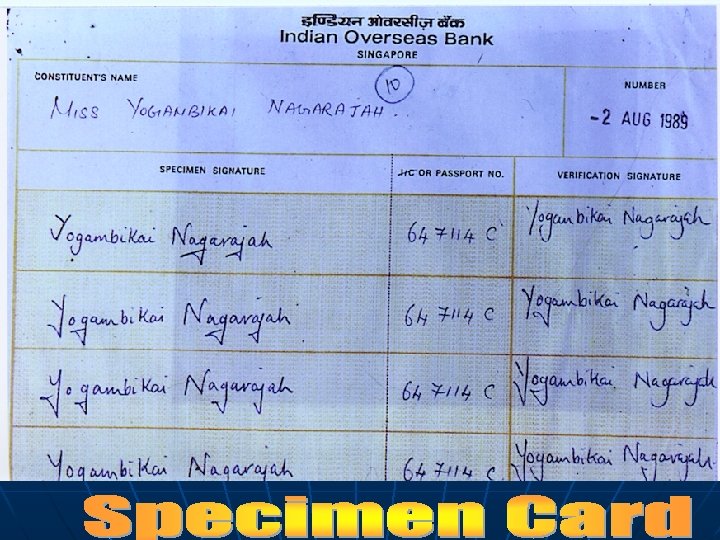 इण्डियन ओवरसीज़ बैंक
Indian Overseas Bank
SINGAPORE
CONSTITUENT'S NAME
10
NUMBER
MISS YOGAMBIKAI NAGARAJAH.
-2 AUG 1989
SPECIMEN SIGNATURE
I/C OR PASSPORT NO.
VERIFICATION SIGNATURE
Yogambikai Nagarajah 647114 C Yogambikai Nagarajah
Yogambikai Nagarajah 647114 C Yogambikai Nagarajah
Yogambikai Nagarajah 647114 C Yogambikai Nagarajah
Yogambikai Nagarajah 647114 C Yogambikai Nagarajah
Specimen Card